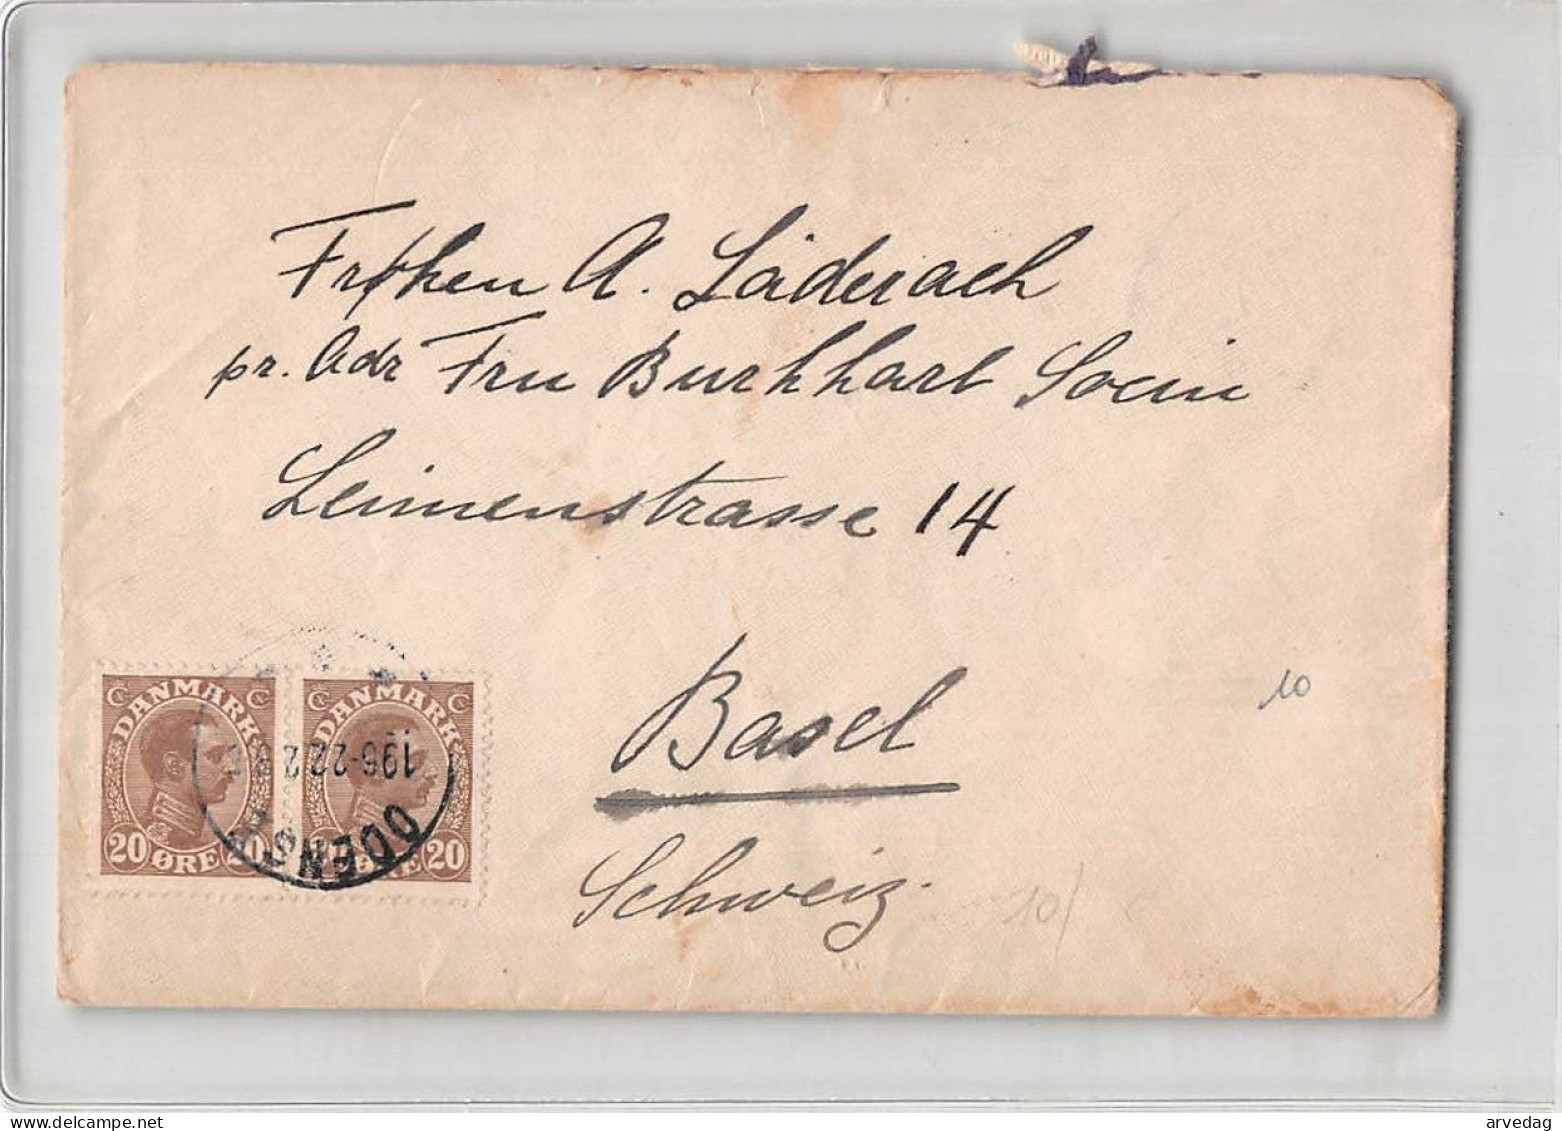 Frøken A. Läderach
pr. Adr Fru Burkhart Socin
Leimenstrasse 14
Basel
Schweiz.
10
10/
DANMARK
20 ØRE 20
DANMARK
ØRE 20
ODENSE
19 6-22 2
arvedag